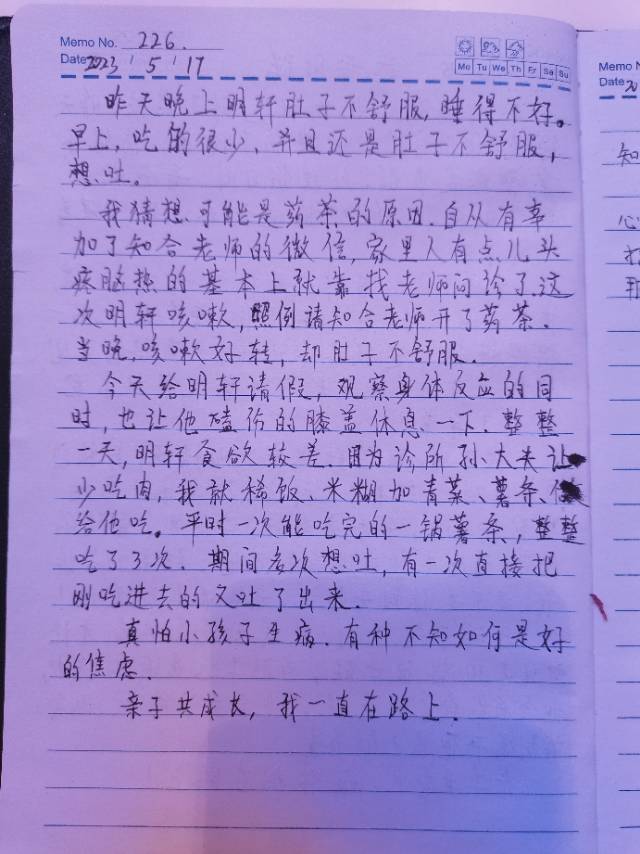 Memo No. 226.
Date 2023 / 5 / 17
Mo Tu We Th Fr Sa Su
昨天晚上明轩肚子不舒服,睡得不好。
早上,吃的很少,并且还是肚子不舒服,
想吐。
我猜想可能是药茶的原因.自从有幸
加了知合老师的微信,家里人有点儿头
疼脑热的基本上就靠找老师问诊了.这
次明轩咳嗽,照例请知合老师开了药茶.
当晚,咳嗽好转,却肚子不舒服.
今天给明轩请假,观察身体反应的同
时,也让他磕伤的膝盖休息一下.整整
一天,明轩食欲较差.因为诊所孙大夫让
少吃肉,我就稀饭、米糊加青菜、薯条、做
给他吃。平时一次能吃完的一锅薯条,整整
吃了3次.期间多次想吐,有一次直接把
刚吃进去的又吐了出来.
真怕小孩子生病.有种不知如何是好
的焦虑.
亲子共成长,我一直在路上.
Memo N
Date 20
知
心